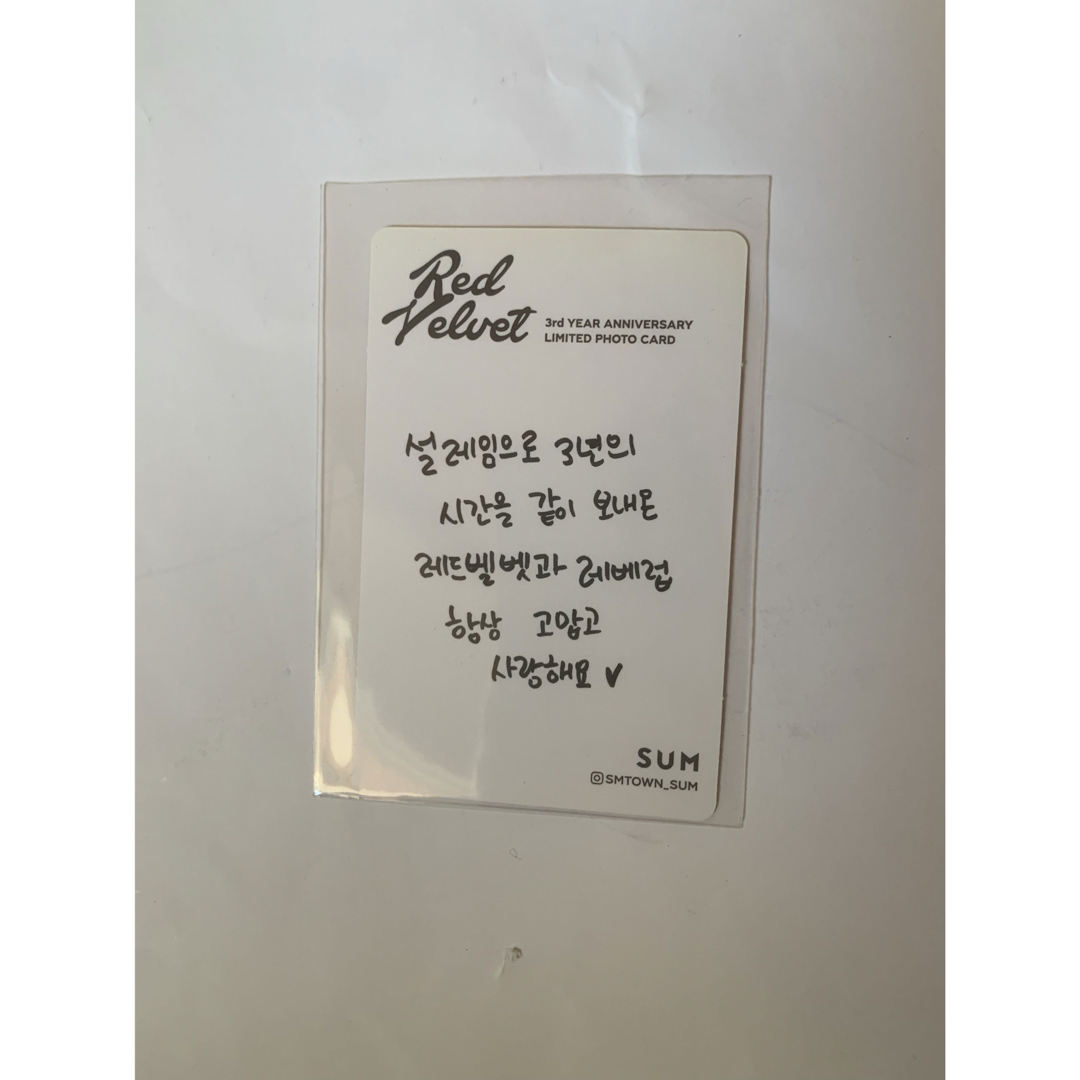 Red
Velvet
3rd YEAR ANNIVERSARY
LIMITED PHOTO CARD
설레임으로 3년의
시간을 같이 보내온
레드벨벳과 레베럽
항상 고맙고
사랑해요 ♥
SUM
SMTOWN_SUM